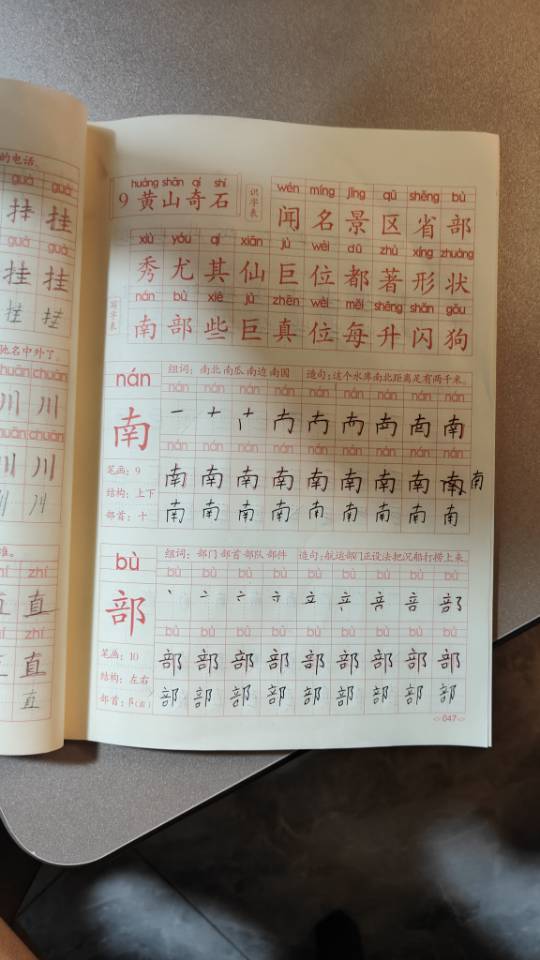 的电话。
guà guà
挂 挂
guà guà
挂 挂
挂 挂
驰名中外了。
chuān chuān
川 川
chuān chuān
川 川
川 川
准。
zhí zhí
直 直
zhí zhí
直 直
直
huáng shān qí shí
9 黄山奇石
识字表
wén míng jǐng qū shěng bù
闻 名 景 区 省 部
xiù yóu qí xiān jù wèi dū zhù xíng zhuàng
秀 尤 其 仙 巨 位 都 著 形 状
写字表
nán bù xiē jù zhēn wèi měi shēng shǎn gǒu
南 部 些 巨 真 位 每 升 闪 狗
nán
南
笔画：9
结构：上下
部首：十
组词：南北 南瓜 南边 南园 造句：这个水库南北距离足有两千米。
nán nán nán nán nán nán nán nán nán
南 南
nán nán nán nán nán nán nán nán nán
南 南 南 南 南 南 南 南 南 南
南 南 南 南 南 南 南 南 南
bù
部
笔画：10
结构：左右
部首：阝(右)
组词：部门 部首 部队 部件 造句：航运部门正设法把沉船打捞上来。
bù bù bù bù bù bù bù bù bù
bù bù bù bù bù bù bù bù bù
部 部 部 部 部 部 部 部 部
部 部 部 部 部 部 部 部 部
047